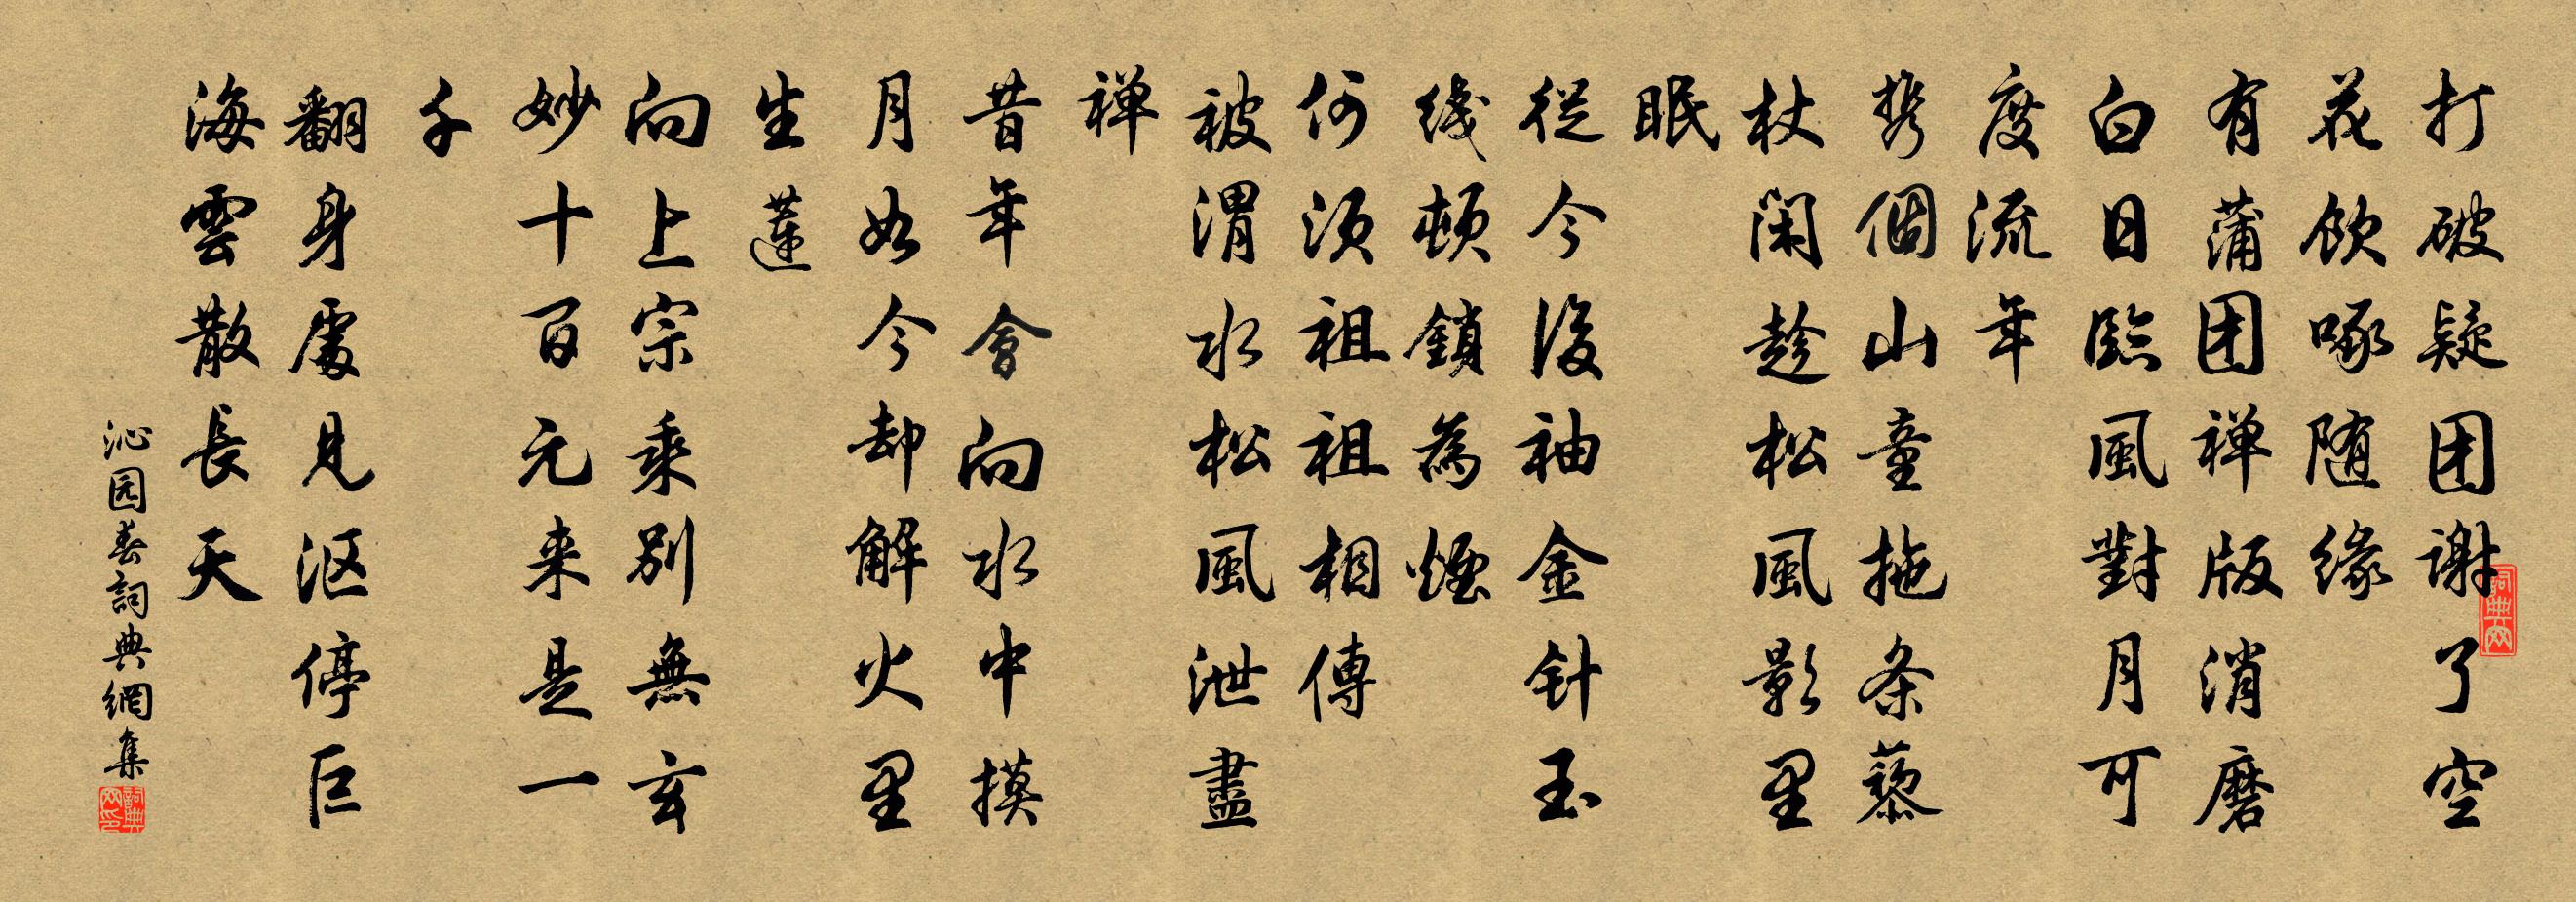 打破疑团谢了空
花饮啄随缘
有蒲团禅版消磨
白日臨風對月可
度流年
携個山童拖条藜
杖闲趁松風影里
眠
從今後袖金针玉
线顿鎖為煙
何须祖祖相傳
被渭水松風泄盡
禅
昔年會向水中摸
月如今却解火里
生莲
向上宗乘别無玄
妙十百元来是一
千
翻身處見沤停巨
海雲散長天
沁园春詞典網集
詞典网
詞典网印